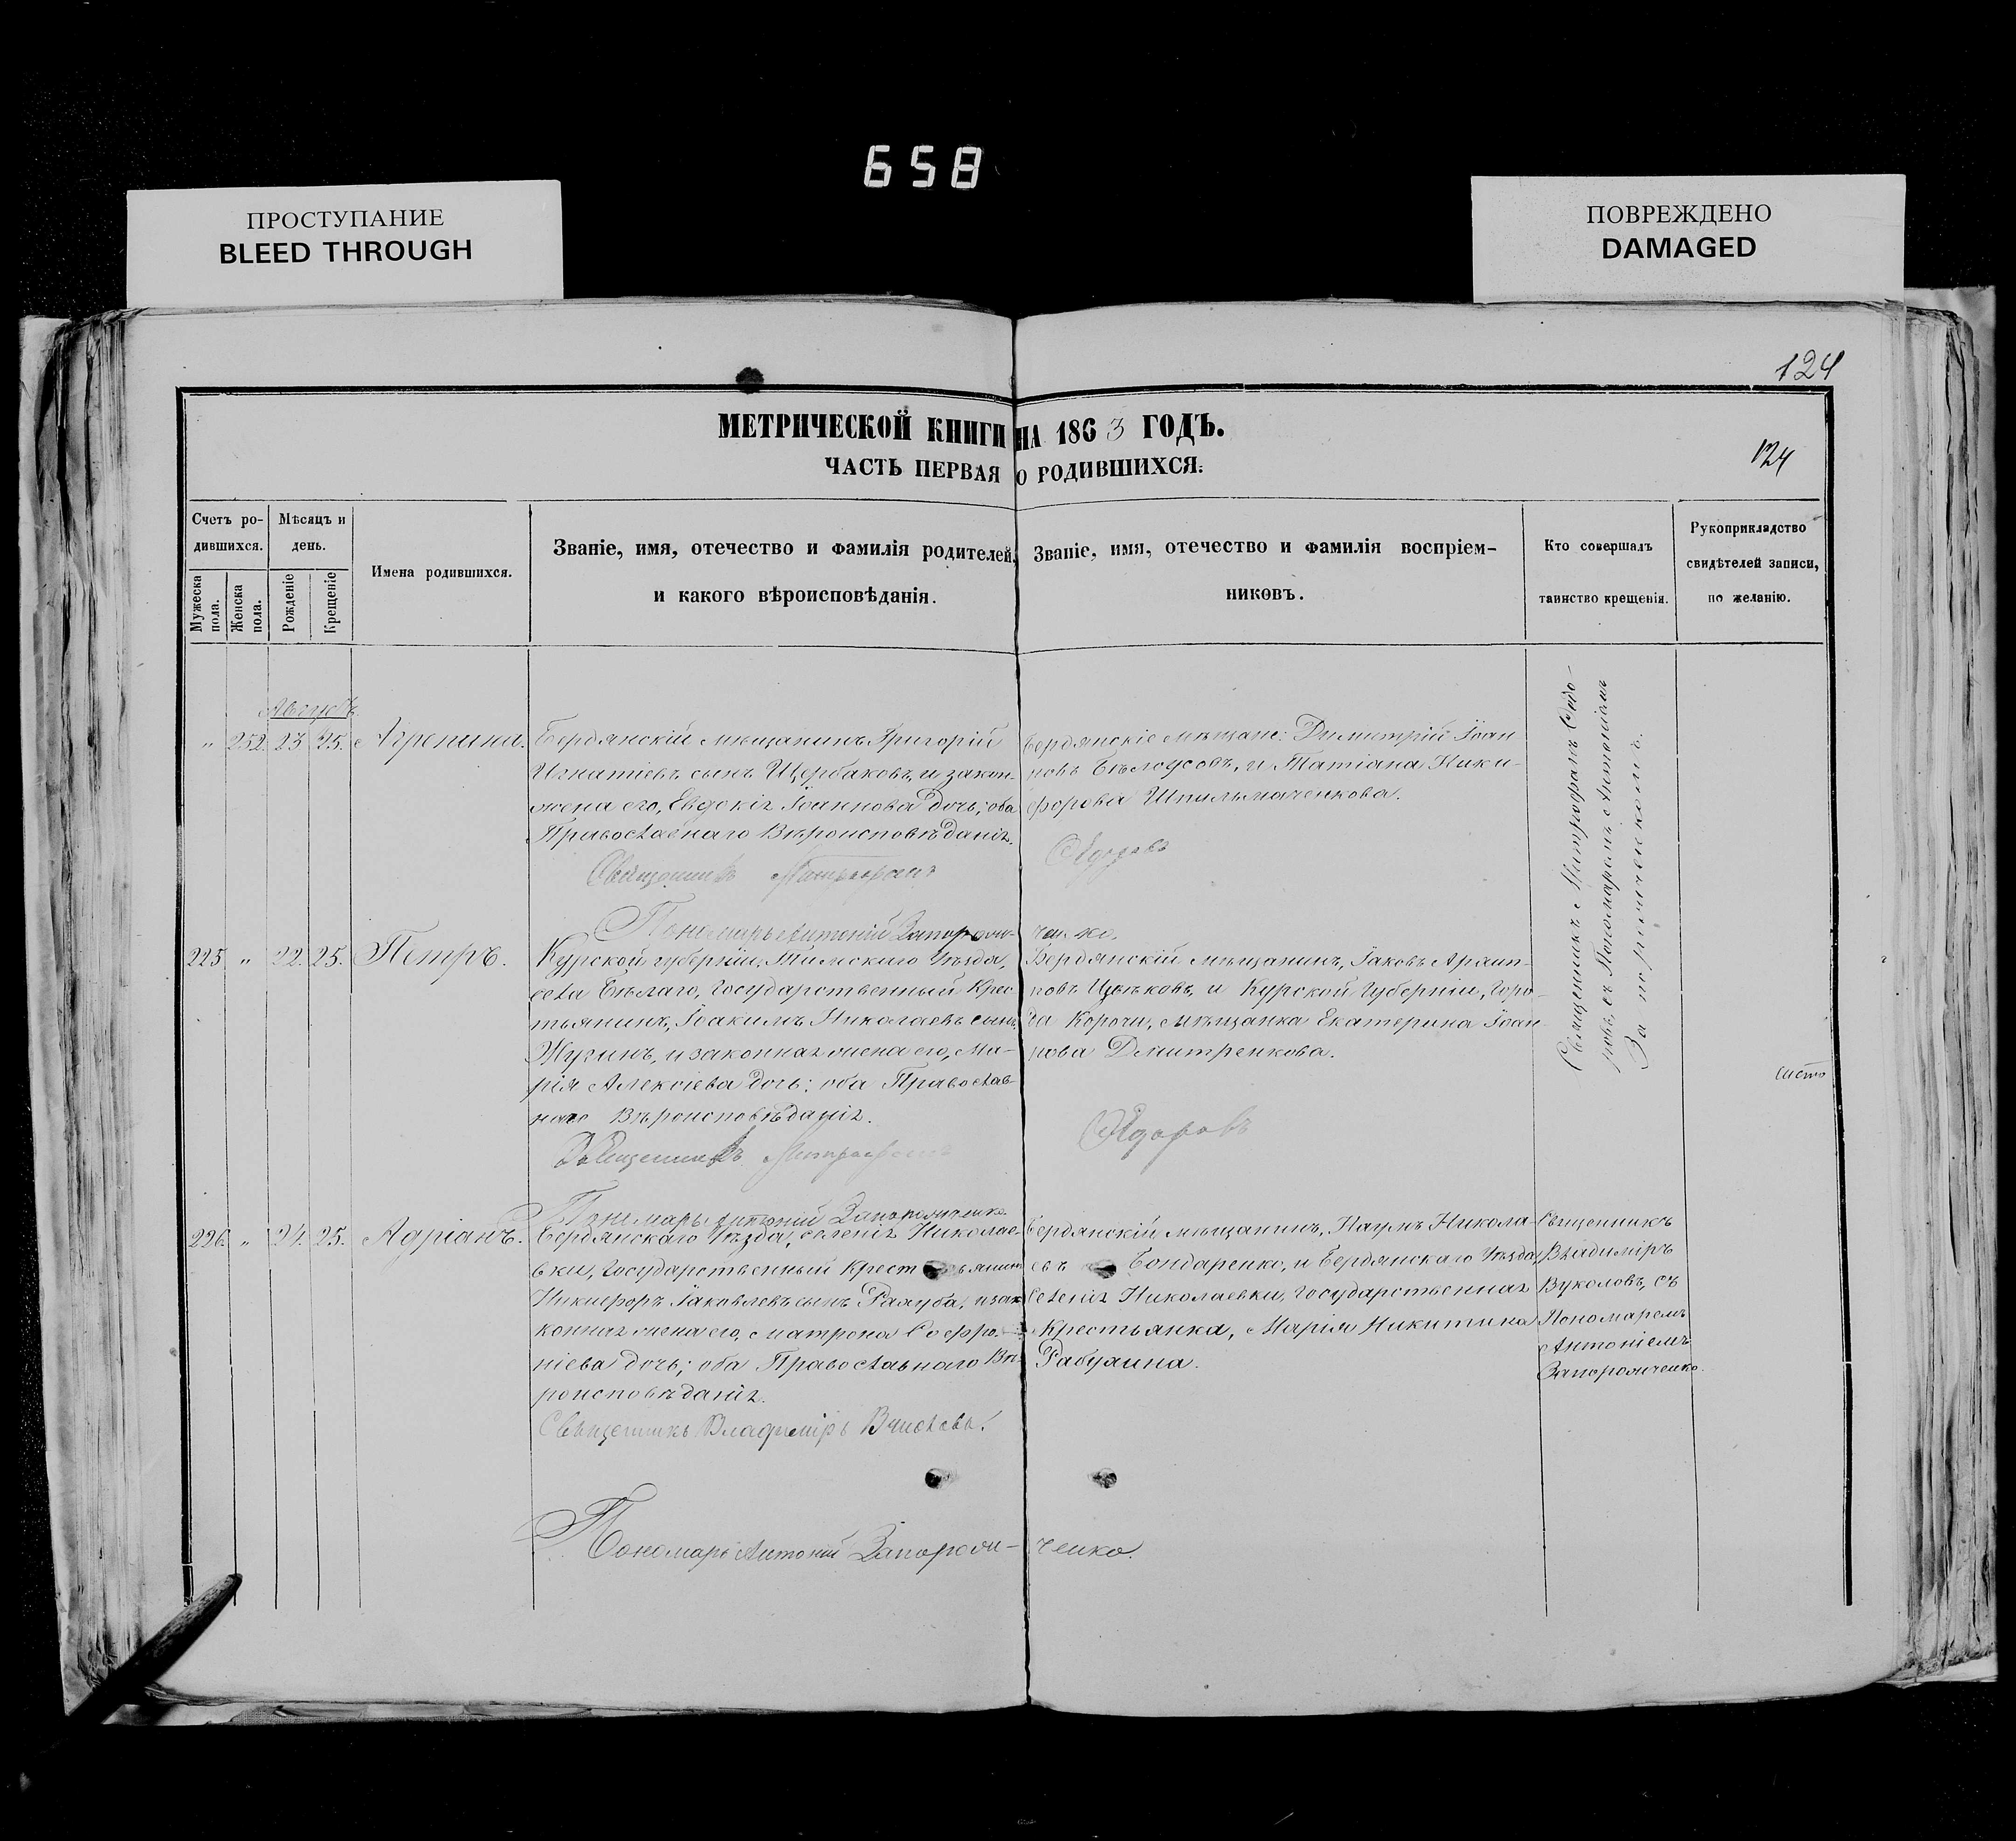 658
ПРОСТУПАНИЕ
BLEED THROUGH
ПОВРЕЖДЕНО
DAMAGED
124
МЕТРИЧЕСКОЙ КНИГИ НА 1863 ГОДЪ.
ЧАСТЬ ПЕРВАЯ О РОДИВШИХСЯ.
124
Счетъ ро-
дившихся.
Мужеска пола.
Женска пола.
Мѣсяцъ и
день.
Рожденіе
Крещеніе
Имена родившихся.
Званіе, имя, отечество и фамилія родителей,
и какого вѣроисповѣданія.
Званіе, имя, отечество и фамилія воспріем-
никовъ.
Кто совершалъ
таинство крещенія.
Рукоприкладство
свидѣтелей записи,
по желанію.
Августъ
„ 252. 23. 25. Агрепина.
Бердянскій мѣщанинъ Григорій
Игнатіевъ сынъ Щербаковъ, и закон.
жена его, Евдокія Іоаннова дочь; оба
Православнаго Вѣроисповѣданія.
Священникъ Митрофанъ
Пономарь Антоній Запорож-
Бердянскіе мѣщане: Димитрій Іоан
новъ Бѣлоусовъ, и Татіана Ники-
форова Шпильмаченкова.
Ѳедоровъ
ченко.
Священникъ Митрофанъ Ѳедо-
ровъ, съ Пономаремъ Антоніемъ
Запорожченкомъ.
225 „ 22. 25. Петръ.
Курской губерніи, Тимскаго Уѣзда,
села Бѣлаго, Государственный Крес
тьянинъ, Іоакимъ Николаевъ сынъ
Жугинъ, и законная жена его, Ма-
рія Алексіева дочь: оба Православ-
наго Вѣроисповѣданія.
Священникъ Митрофанъ
Пономарь Антоній Запорожченко
Бердянскій мѣщанинъ, Іаковъ Архип-
повъ Цвѣтковъ, и Курской Губерніи, Горо-
да Корочи, мѣщанка Екатерина Іоан
нова Дмитренкова.
Ѳедоровъ
226. „ 24. 25. Адріанъ.
Бердянскаго Уѣзда, селенія Николае-
вки, Государственный Крестьянинъ
Никифоръ Іаковлевъ сынъ Рахуба, и за
конная жена его, Матрона Софро-
ніева дочь; оба Православнаго Вѣ-
роисповѣданія.
Священникъ Владимиръ Вуколовъ.
Пономарь Антоній Запорож-
Бердянскій мѣщанинъ, Наумъ Никола-
евъ Бондаренко, и Бердянскаго Уѣзда,
Селенія Николаевки, Государственная
Крестьянка, Марія Никитина
Рабухина.
ченко.
Священникъ
Владиміръ
Вуколовъ, съ
Пономаремъ
Антоніемъ
Запорожченко.